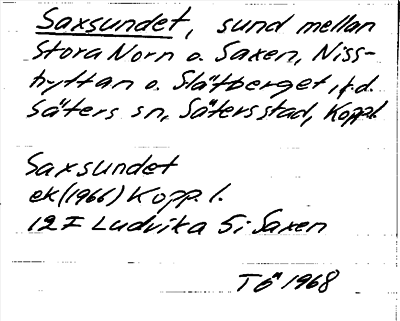 Saxsundet, sund mellan
Stora Norn o. Saxen, Niss-
hyttan o. Slätberget, f.d.
Säters sn, Säters stad, Kopp.l.
Saxsundet
ek (1966) Kopp. l.
12F Ludvika 5i Saxen
TÖ 1968